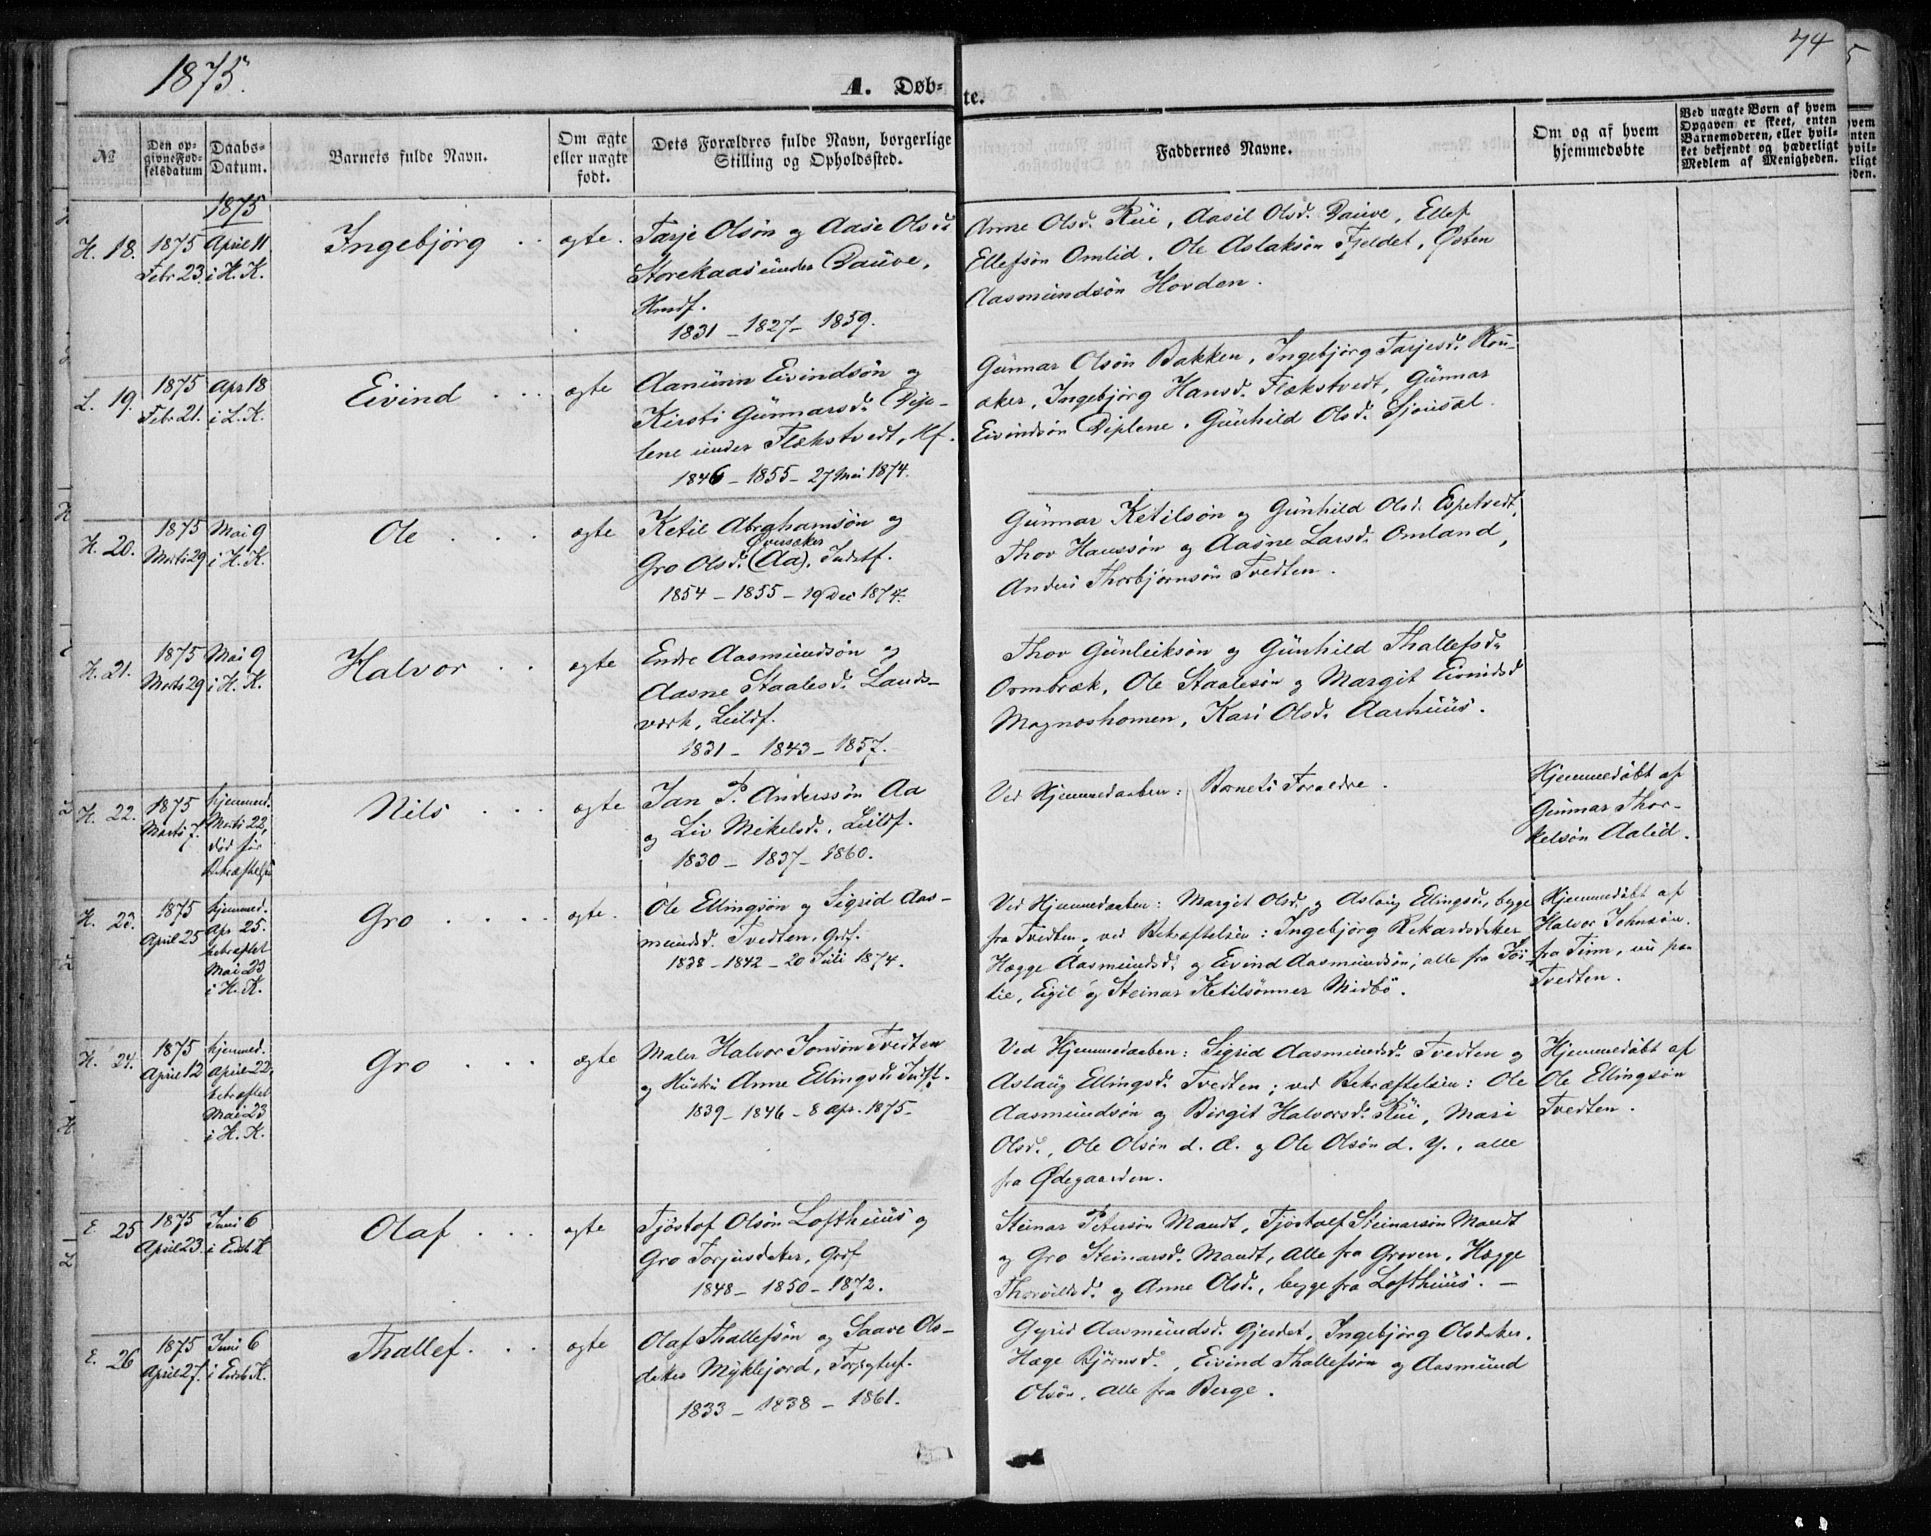 1875.
74
A. Døb-
te.
№
Den op-
givne Fød-
selsdatum
Daabs-
Datum.
Barnets fulde Navn.
Om ægte
eller uægte
født.
Dets Forældres fulde Navn, borgerlige
Stilling og Opholdssted.
Faddernes Navne.
Om og af hvem
hjemmedøbte
Ved uægte Børn af hvem
Opgaven er skeet, enten
Barnemoderen, eller hvil-
ket bekjendt og hæderligt
Medlem af Menigheden.
1875
H. 18.
1875
Febr 23.
April 11
i H. K.
Ingebjörg
ægte.
Tarje Olsön og Aase Olsd.
Storekaas under Dauve,
Hmdf.
1831 - 1827 - 1859.
Anne Olsd. Rüe, Aasil Olsd. Dauve, Ellef
Ellefsön Omlid, Ole Aslaksön Fjeldet, Østen
Aasmundsön Hovden.
L. 19.
1875
Febr 21.
Apr 18
i L. K.
Eivind
ægte
Aanünn Eivindsön og
Kirsti Günnarsd. Dip-
lene under Flækstvedt, Hf.
1846 - 1855 - 27 Mai 1874.
Günnar Olsön Bakken, Ingebjörg Tarjesd. Rou-
aker, Ingebjörg Hansd. Flækstvedt, Günnar
Eivindsön Diplene, Günhild Olsd.
H. 20.
1875
Marts 29
Mai 9
i H. K.
Ole
ægte
Ketil Abrahamsön og
Øversaker
Gro Olsd. (Aa), Indstf.
1854 - 1855 - 19 Dec 1874.
Günnar Ketilsön og Günhild Olsd. Espetvedt,
Thov Hanssön og Aasne Larsd. Omland,
Anders Thorbjörnsön Tvedten.
H. 21.
1875
Marts 29
Mai 9
i H. K.
Halvor
ægte
Endre Aasmundsön og
Aasne Staalesd. Lands-
værk, Leildf.
1831 - 1843 - 1857.
Thov Günleiksön og Günhild Thallefsd.
Ormbræk, Ole Staalesön og Margit Eivindsd
Magnoshomen, Kari Olsd. Aarhüüs.
H. 22.
1875
Marts 7.
hjemmed.
Marts 22,
död för
Bekræftelsen
Nils
ægte
Jan P. Anderssön Aa
og Liv Mikelsd., Leildf.
1830 - 1837 - 1860.
Ved Hjemmedaaben: Barnets Forældre.
Hjemmedöbt af
Günnar Thor-
kelsön Aalid.
H. 23.
1875
April 25
hjemmed.
Apr. 25.
bekræftet
Mai 23
i H. K.
Gro
ægte.
Ole Ellingsön og Sigrid Aas-
mundsd. Tvedten, Grdf.
1838 - 1842 - 20 Juli 1874.
Ved Hjemmedaaben: Margit Olsd. og Aslaüg Ellingsd., begge
fra Tvedten; ved Bekræftelsen: Ingebjörg Rekardsdatter
Hægge Aasmundsd. og Eivind Aasmundsön, alle fra
lie, Eigil og Steinar Ketilsönner Midbö.
Hjemmedöbt af
Halvor Johnsön
fra Tinn, nu paa
Tvedten.
H. 24.
1875
April 12
hjemmed.
April 22,
bekræftet
Mai 23
i H. K.
Gro
ægte
Maler Halvor Jonsön Tvedten
og Hüstru Anne Ellingsd. Indstf.
1839 - 1846 - 8 Apr. 1875.
Ved Hjemmedaaben: Sigrid Aasmundsd. Tvedten og
Aslaüg Ellingsd. Tvedten; ved Bekræftelsen: Ole
Aasmundsön og Birgit Halvorsd. Rüe, Mari
Olsd., Ole Olsön d. Æ. og Ole Olsön d. Y., alle
fra Ødegaarden.
Hjemmedöbt af
Ole Ellingsön
Tvedten.
E. 25
1875
April 23.
Juni 6
i Eidsb. K
Olaf
ægte
Tjöstof Olsön Lofthüüs og
Gro Torjusdatter, Grdf
1848 - 1850 - 1872.
Steinar Petersön Mandt, Tjöstolf Steinarsön Mandt
og Gro Steinarsd. Mandt, alle fra Groven, Hægge
Thorvildsd. og Anne Olsd., begge fra Lofthüüs.
E. 26
1875
April 27.
Juni 6
i Eidsb. K.
Thallef
ægte
Olaf Thallefsön og Saave Ols-
datter Myklejord,
1833 - 1838 - 1861.
Gyrid Aasmundsd. Gjerdet, Ingebjörg Olsdatter,
Hæge Bjørnsd., Eivind Thallefsön og Aasmund
Olsön, alle fra Berge.